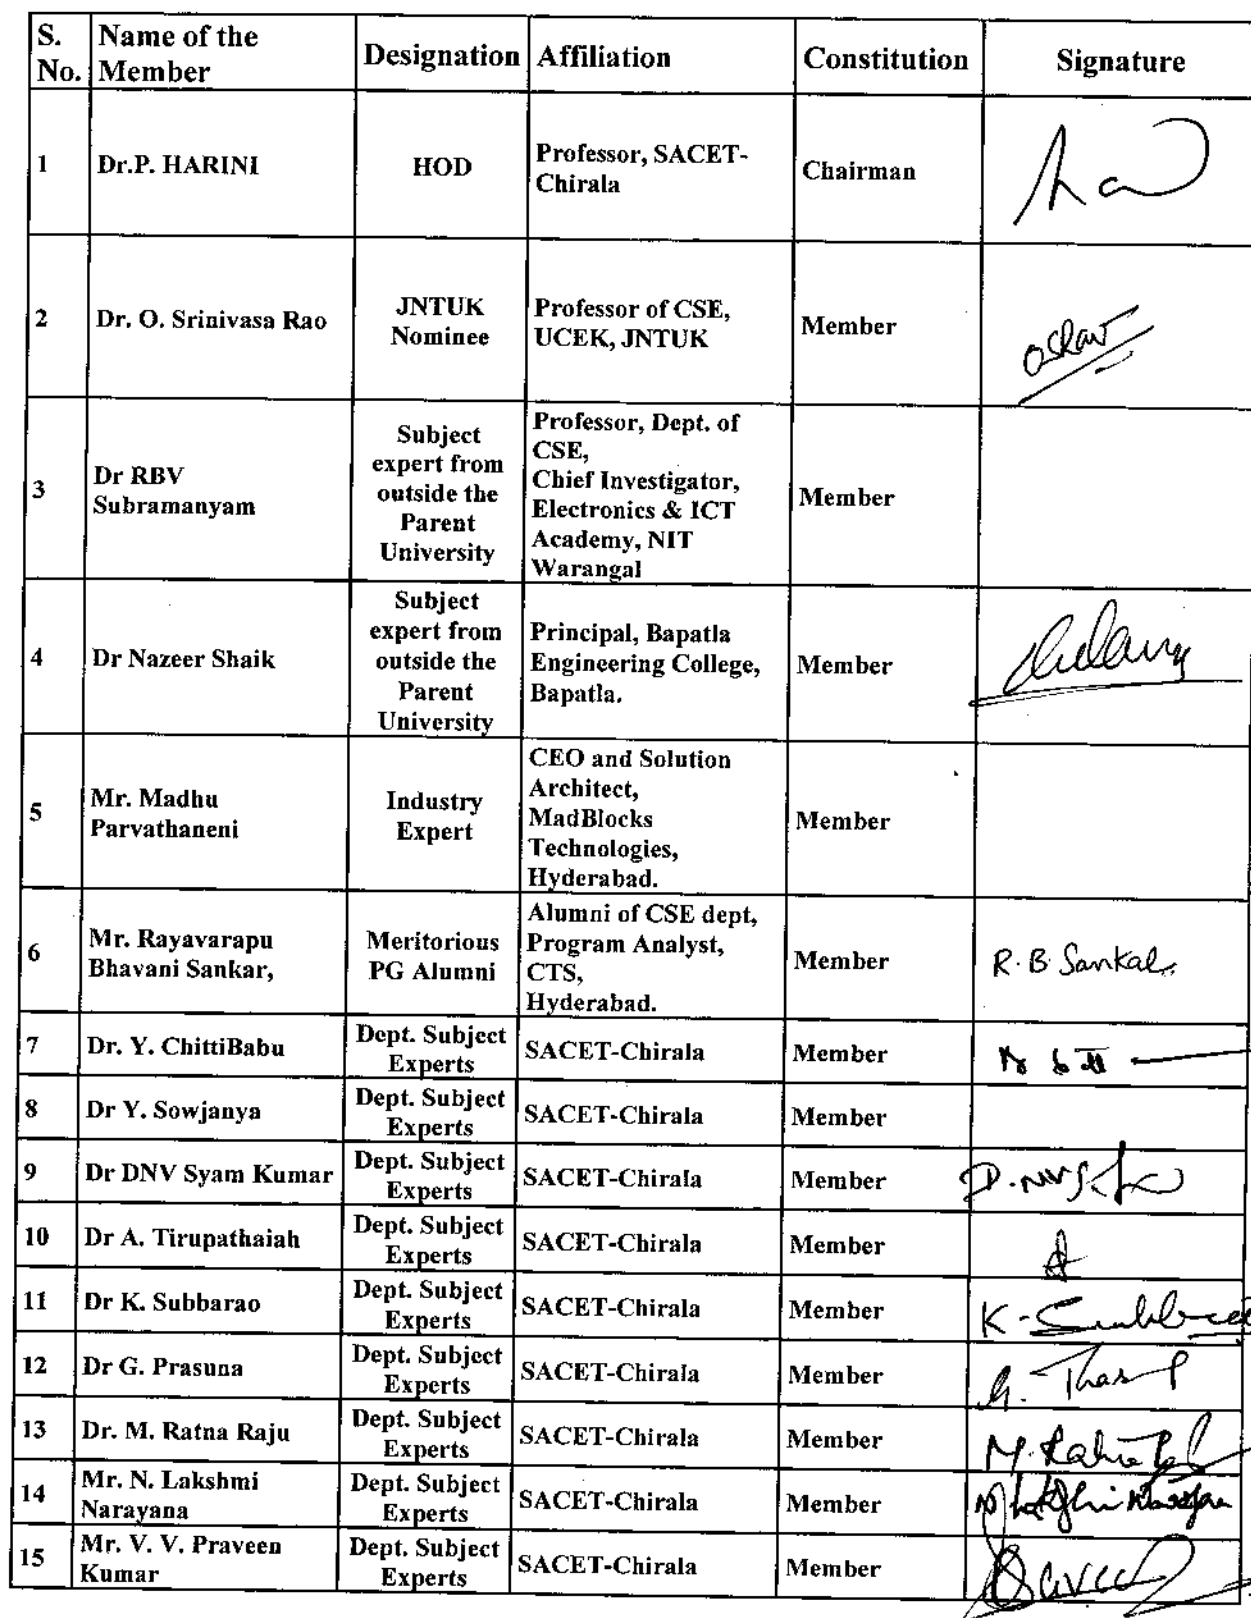 S. No. Name of the Member Designation Affiliation Constitution Signature
1 Dr.P. HARINI HOD Professor, SACET-
Chirala Chairman
2 Dr. O. Srinivasa Rao JNTUK
Nominee Professor of CSE,
UCEK, JNTUK Member OSRao
3 Dr RBV
Subramanyam Subject
expert from
outside the
Parent
University Professor, Dept. of
CSE,
Chief Investigator,
Electronics & ICT
Academy, NIT
Warangal Member
4 Dr Nazeer Shaik Subject
expert from
outside the
Parent
University Principal, Bapatla
Engineering College,
Bapatla. Member
5 Mr. Madhu
Parvathaneni Industry
Expert CEO and Solution
Architect,
MadBlocks
Technologies,
Hyderabad. Member
6 Mr. Rayavarapu
Bhavani Sankar, Meritorious
PG Alumni Alumni of CSE dept,
Program Analyst,
CTS,
Hyderabad. Member R.B.Sankar
7 Dr. Y. ChittiBabu Dept. Subject
Experts SACET-Chirala Member
8 Dr Y. Sowjanya Dept. Subject
Experts SACET-Chirala Member
9 Dr DNV Syam Kumar Dept. Subject
Experts SACET-Chirala Member
10 Dr A. Tirupathaiah Dept. Subject
Experts SACET-Chirala Member
11 Dr K. Subbarao Dept. Subject
Experts SACET-Chirala Member K-Subbarao
12 Dr G. Prasuna Dept. Subject
Experts SACET-Chirala Member
13 Dr. M. Ratna Raju Dept. Subject
Experts SACET-Chirala Member
14 Mr. N. Lakshmi
Narayana Dept. Subject
Experts SACET-Chirala Member
15 Mr. V. V. Praveen
Kumar Dept. Subject
Experts SACET-Chirala Member